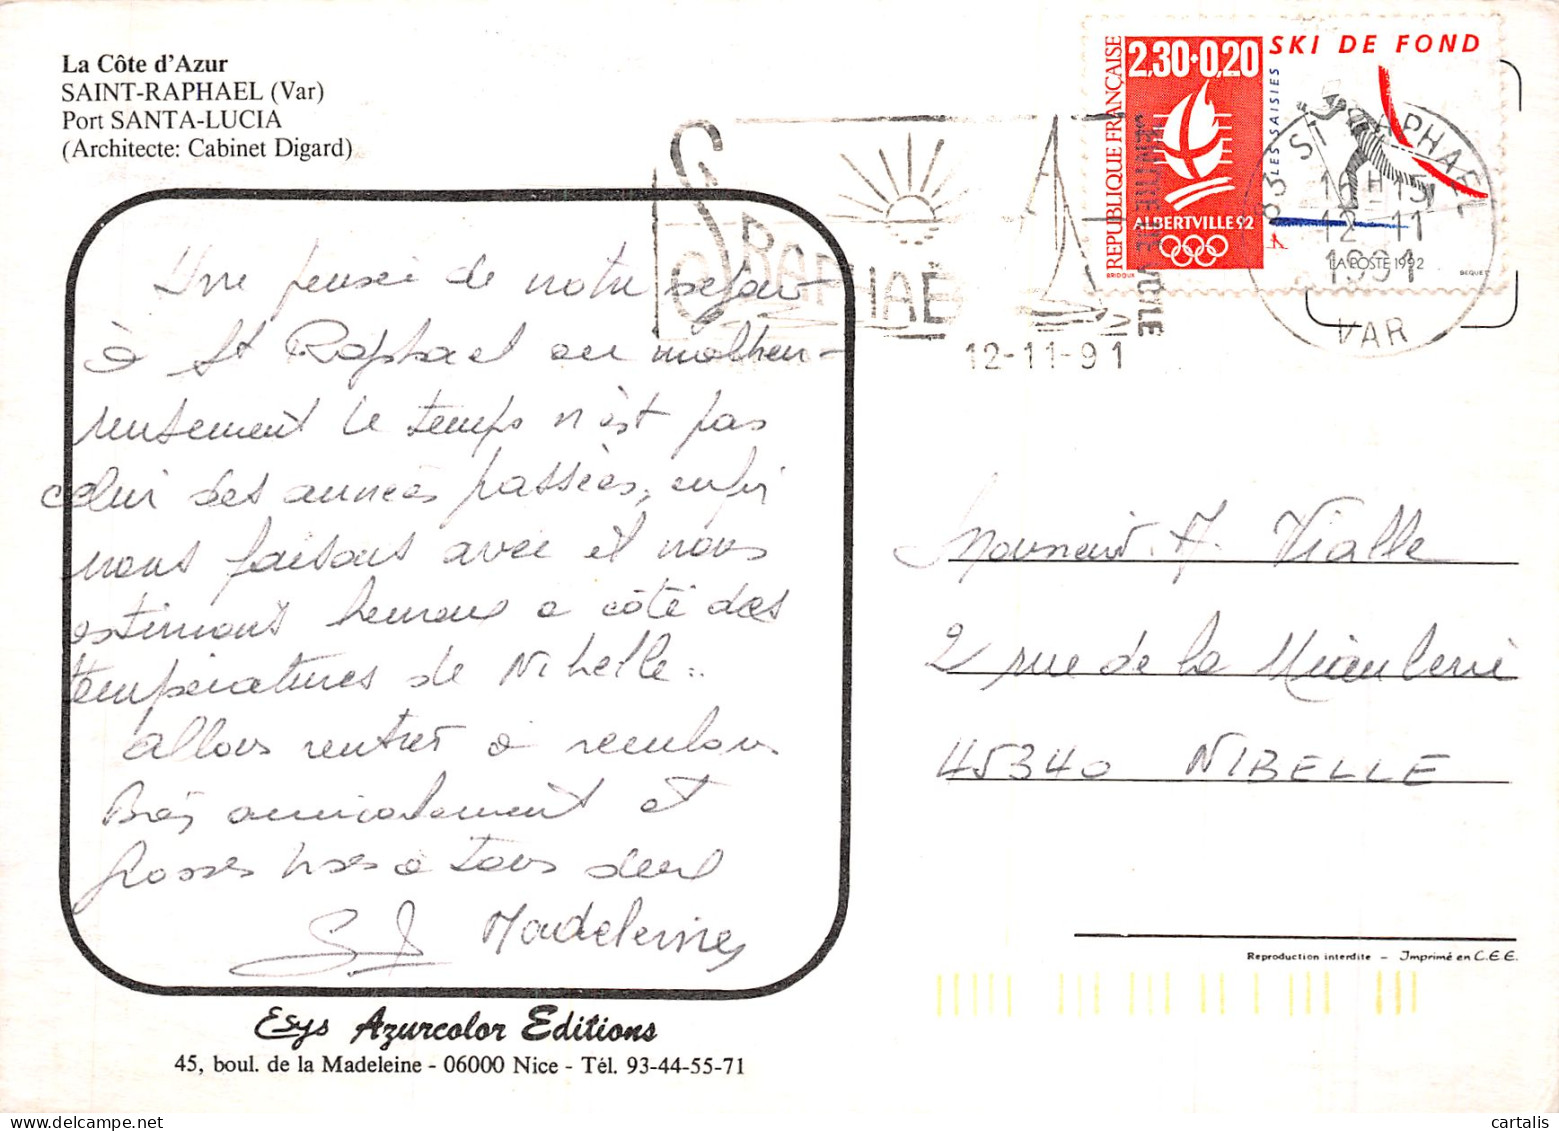 La Côte d'Azur
SAINT-RAPHAEL (Var)
Port SANTA-LUCIA
(Architecte: Cabinet Digard)
REPUBLIQUE FRANÇAISE
2,30+0,20
ALBERTVILLE 92
SKI DE FOND
LES SAISIES
LA POSTE 1992
BRIDOUX
BEQUET
83 ST RAPHAEL
16 H 15
12-11
1991
VAR
ST RAPHAËL
VOILE
12-11-91
Une pensée de notre séjour
à St Raphael ou malheu-
reusement le temps n'est pas
celui des années passées, enfin
nous faisons avec et nous
estimons heureux a côté des
températures de Nibelle.
allons rentrer à
Bien amicalement et
Grosses bises à tous deux
Madeleine
Monsieur A. Vialle
2 rue de la
45340 NIBELLE
Reproduction interdite - Imprimé en C.E.E.
Esys Azurcolor Editions
45, boul. de la Madeleine - 06000 Nice - Tél. 93-44-55-71
cartalis